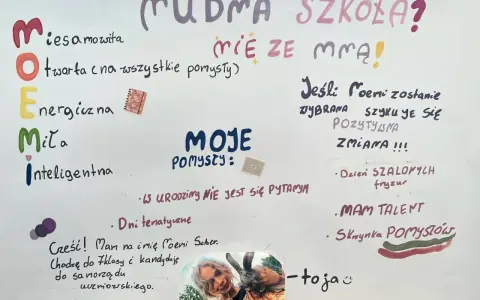 NUDNA SZKOŁA?
NIE ZE MNĄ!
NOEMI
Niesamowita
Otwarta (na wszystkie pomysły)
Energiczna
Miła
Inteligentna
Jeśli Noemi zostanie
WYBRANA SZYKUJE SIĘ
POZYTYWNA
ZMIANA!!!
MOJE
POMYSŁY:
• W URODZINY NIE JEST SIĘ PYTANYM
• Dni tematyczne
• Dzień SZALONYCH
fryzur
• MAM TALENT
• Skrzynka POMYSŁÓW
Cześć! Mam na imię Noemi
Chodzę do 7 klasy i kandyduję
do samorządu
uczniowskiego.
- to ja